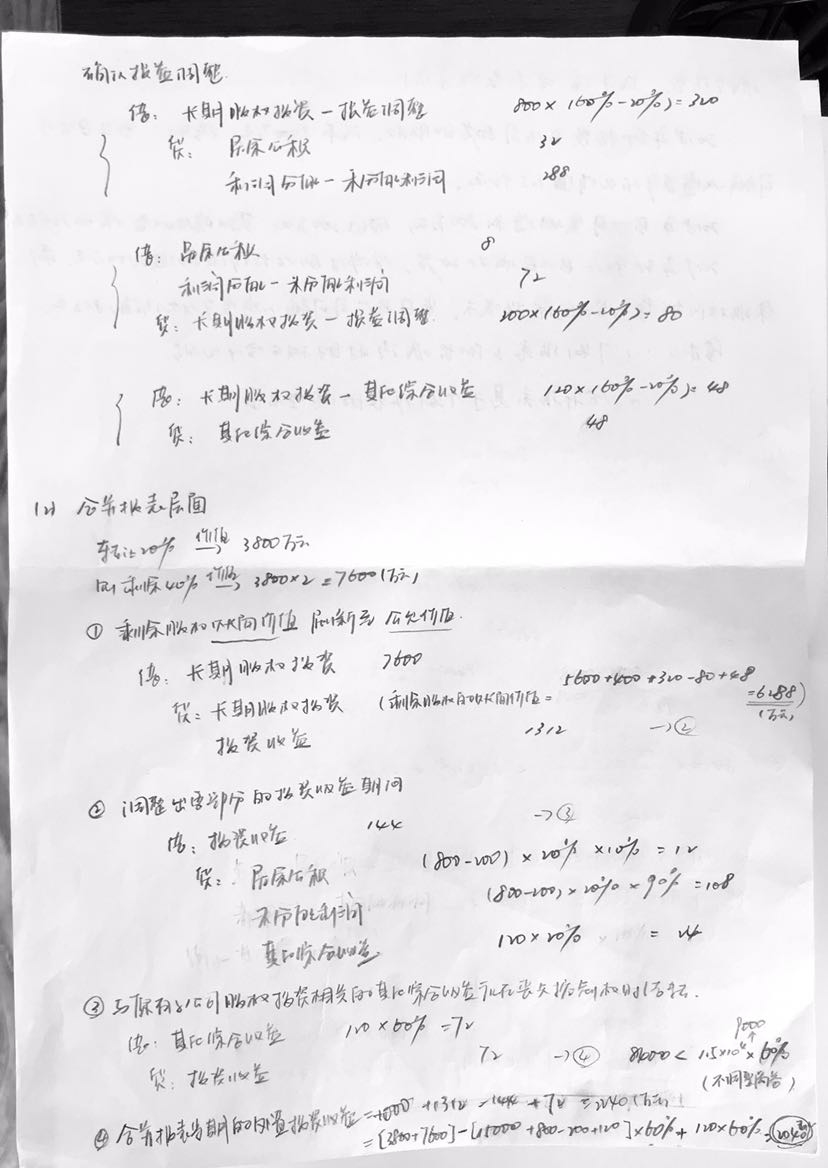 确认损益调整
借：长期股权投资—损益调整 800×(60%-20%)=320
贷：盈余公积 32
利润分配—未分配利润 288
借：盈余公积 8
利润分配—未分配利润 72
贷：长期股权投资—损益调整 200×(60%-20%)=80
借：长期股权投资—其他综合收益 120×(60%-20%)=48
贷：其他综合收益 48
(2) 合并报表层面
转让20% 价值→ 3800万元
则剩余40% 价值→ 3800×2=7600(万元)
① 剩余股权账面价值 刷新至 公允价值.
借：长期股权投资 7600
贷：长期股权投资 (剩余股权的账面价值=5600+400+320-80+48=6288(万元))
投资收益 1312 →②
② 调整出售部分的投资收益期间
借：投资收益 144 →③
贷：盈余公积 (800-200)×20%×10%=12
未分配利润 (800-200)×20%×90%=108
其他综合收益 120×20% = 24
③ 与原有子公司股权投资相关的其他综合收益 在丧失控制权时结转.
借：其他综合收益 120×60%=72
贷：投资收益 72 →④
9000
<1.5×10⁴×60%
(不用商誉)
④ 合并报表当期的处置投资收益= +1312-144+72=2040(万元)
=[3800+7600]-[15000+800-200+120]×60%+120×60%=2040